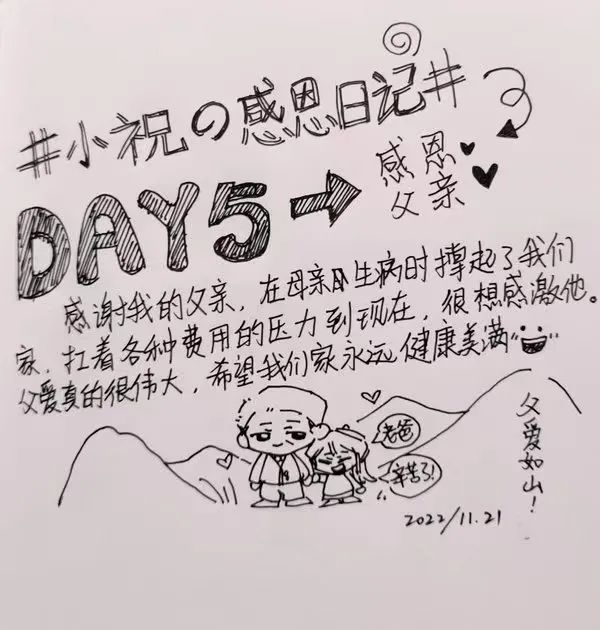 #小祝の感恩日记#
DAY5→感恩
父亲
感谢我的父亲，在母亲生病时撑起了我们
家，扛着各种费用的压力到现在，很想感激他。
父爱真的很伟大，希望我们家永远健康美满
老爸
辛苦了！
父爱如山！
2022/11.21